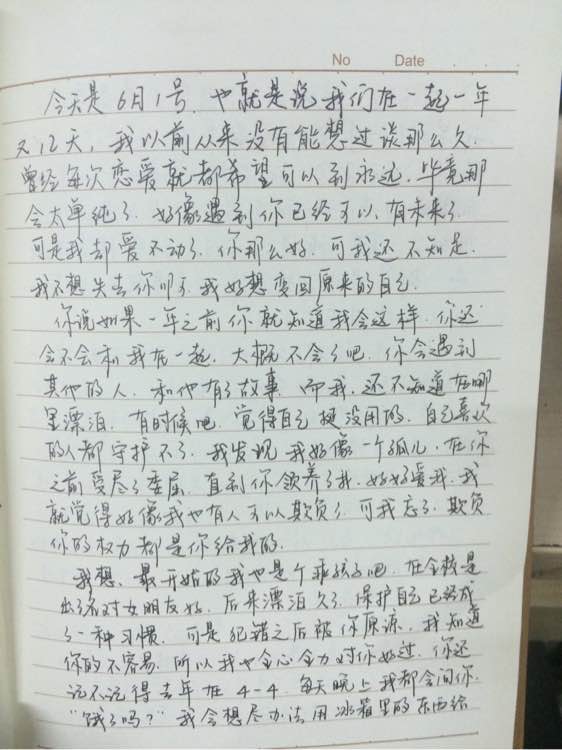 No Date
今天是6月1号.也就是说我们在一起一年
又12天,我以前从来没有能想过谈那么久.
曾经每次恋爱就都希望可以到永远.毕竟那
会太单纯了.好像遇到你已经可以.有未来了.
可是我却爱不动了.你那么好.可我还不知足.
我不想失去你.我好想变回原来的自己.
你说如果一年之前你就知道我会这样.你还
会不会和我在一起.大概不会了吧.你会遇到
其他的人.和他有了故事.而我.还不知道在哪
里漂泊.有时候吧.觉得自己挺没用的.自己喜欢
的人都守护不了.我发现我好像一个孤儿.在你
之前受尽了委屈.直到你领养了我.好好爱我.我
就觉得好像我也有人可以欺负了.可我忘了.欺负
你的权力都是你给我的.
我想.最开始的我也是个乖孩子吧.在全校是
出了名对女朋友好.后来漂泊久了.保护自己已经成
了一种习惯.可是犯错之后被你原谅.我知道
你的不容易.所以我也全心全力对你好过.你还
记不记得去年在4-4.每天晚上我都会问你.
“饿了吗?”我会想尽办法用冰箱里的东西给